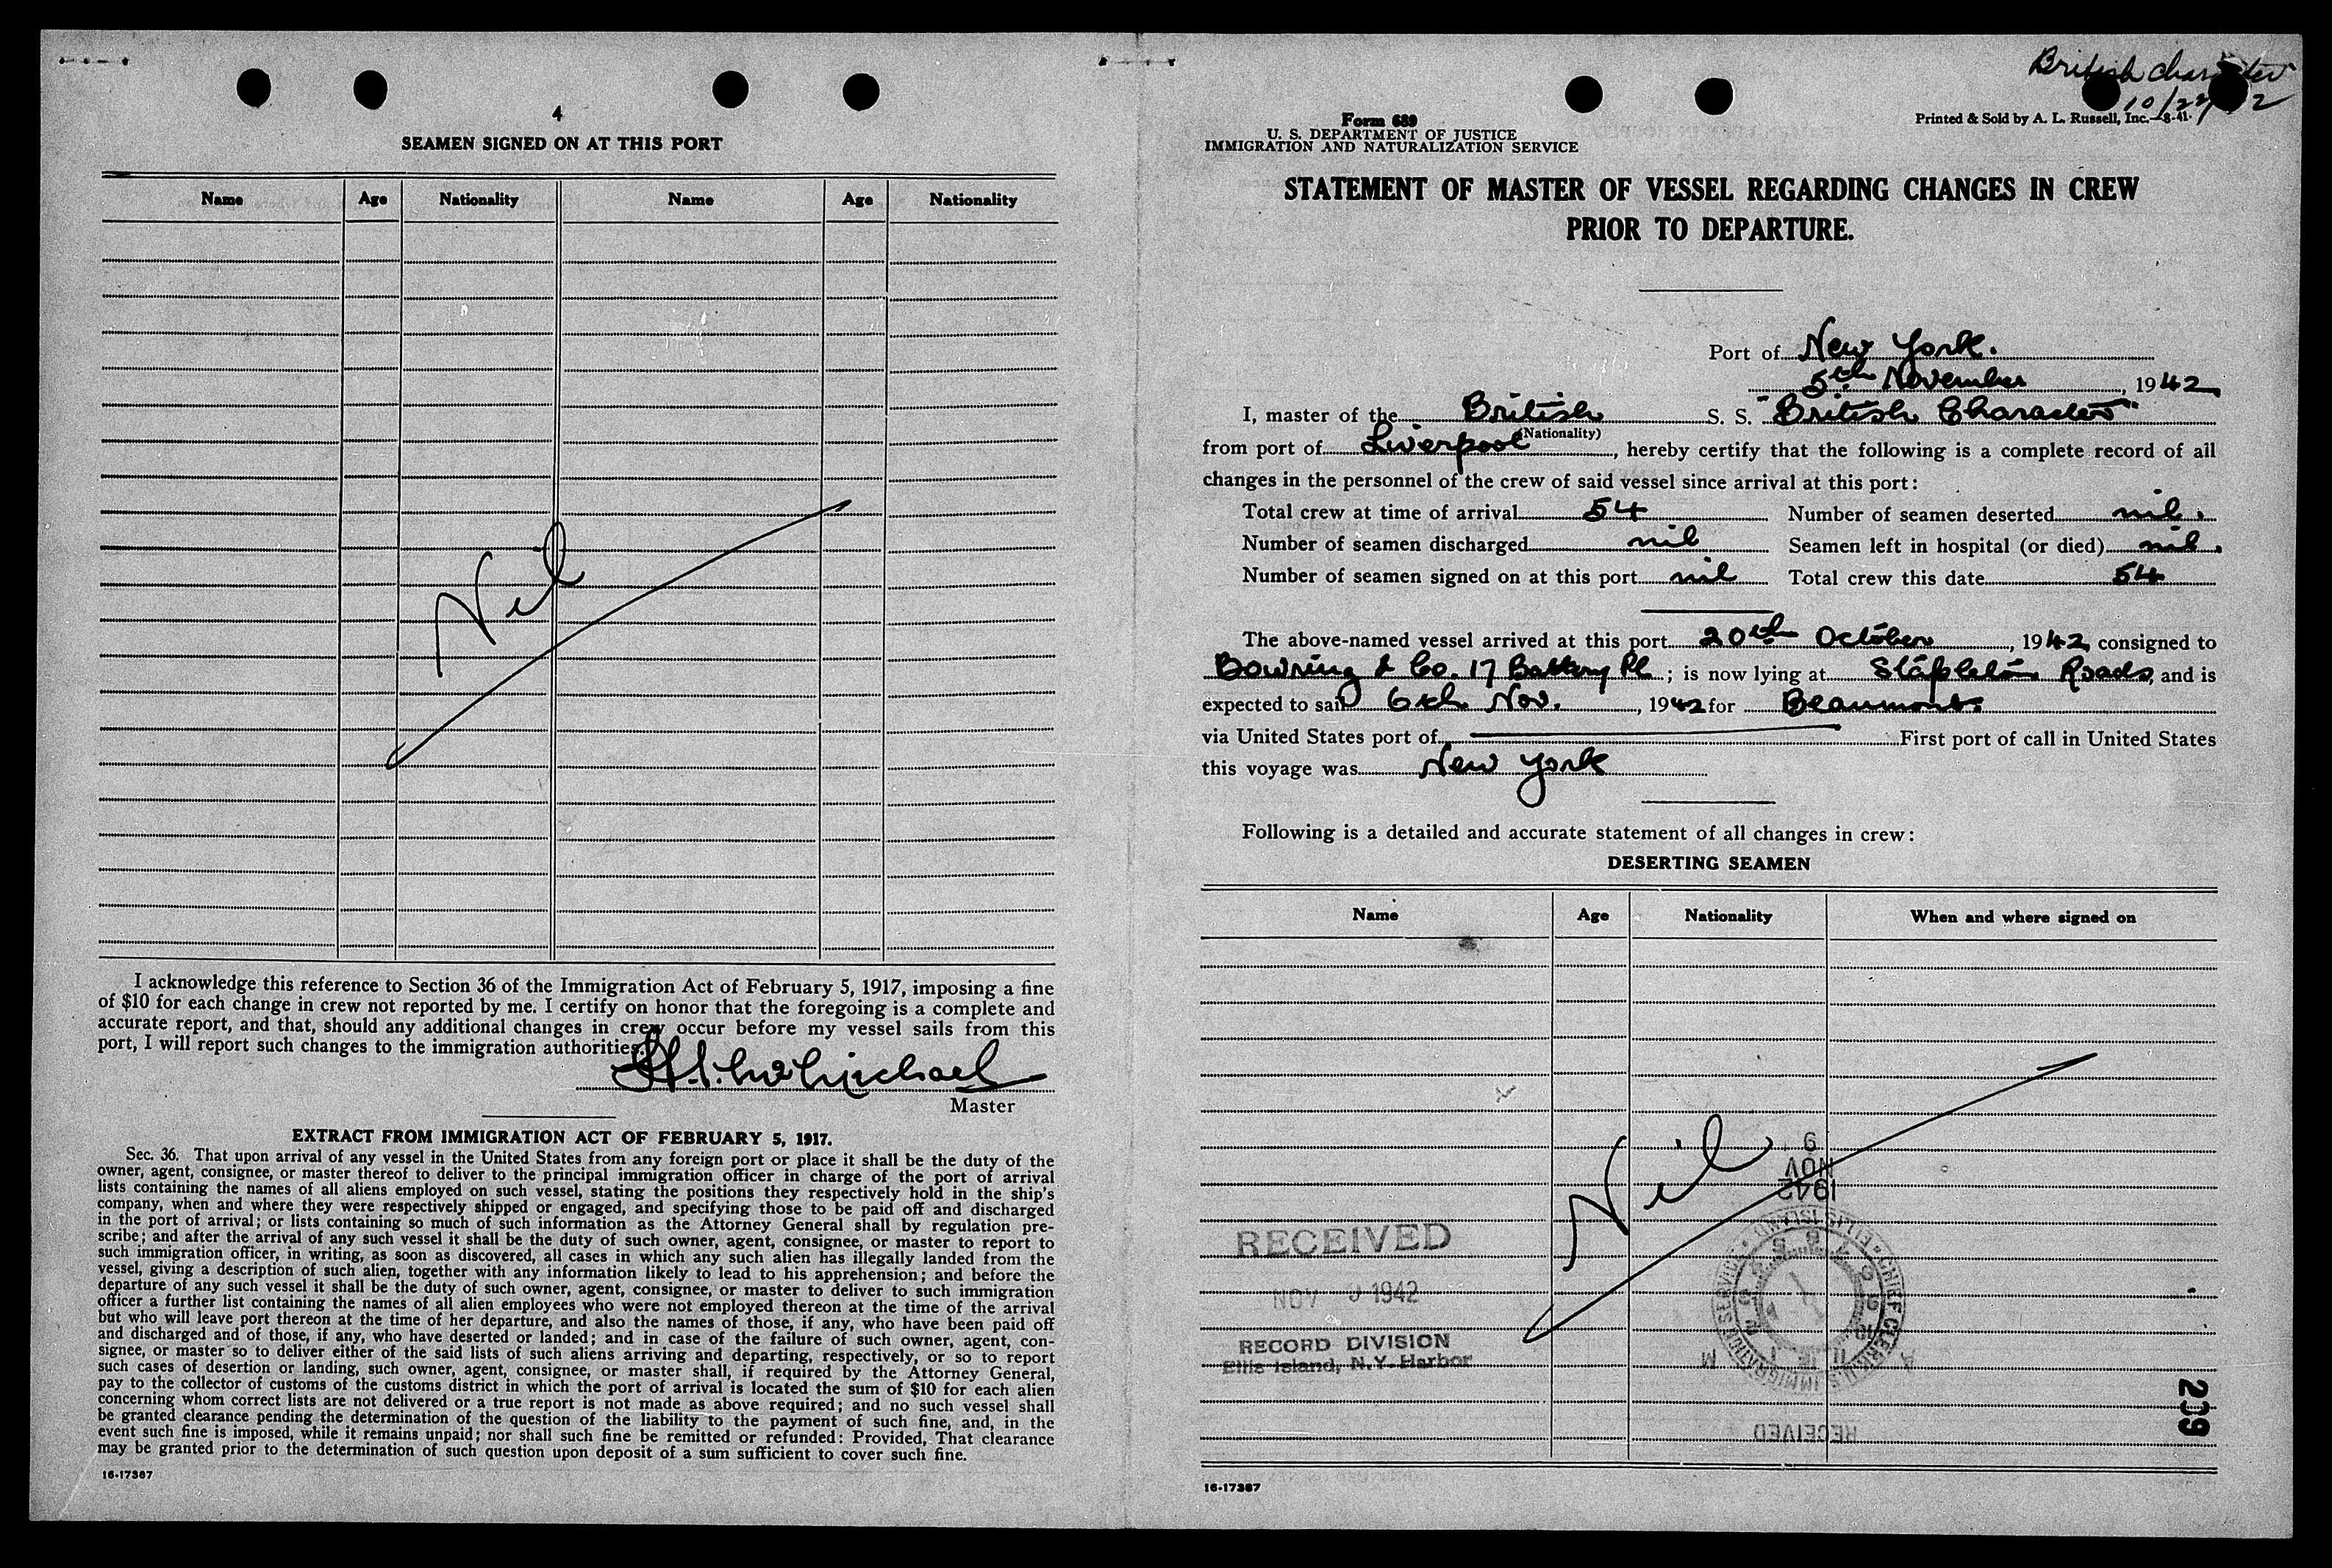 4
SEAMEN SIGNED ON AT THIS PORT
Name Age Nationality Name Age Nationality
Nil
I acknowledge this reference to Section 36 of the Immigration Act of February 5, 1917, imposing a fine
of $10 for each change in crew not reported by me. I certify on honor that the foregoing is a complete and
accurate report, and that, should any additional changes in crew occur before my vessel sails from this
port, I will report such changes to the immigration authorities.
Master
EXTRACT FROM IMMIGRATION ACT OF FEBRUARY 5, 1917.
Sec. 36. That upon arrival of any vessel in the United States from any foreign port or place it shall be the duty of the
owner, agent, consignee, or master thereof to deliver to the principal immigration officer in charge of the port of arrival
lists containing the names of all aliens employed on such vessel, stating the positions they respectively hold in the ship's
company, when and where they were respectively shipped or engaged, and specifying those to be paid off and discharged
in the port of arrival; or lists containing so much of such information as the Attorney General shall by regulation pre-
scribe; and after the arrival of any such vessel it shall be the duty of such owner, agent, consignee, or master to report to
such immigration officer, in writing, as soon as discovered, all cases in which any such alien has illegally landed from the
vessel, giving a description of such alien, together with any information likely to lead to his apprehension; and before the
departure of any such vessel it shall be the duty of such owner, agent, consignee, or master to deliver to such immigration
officer a further list containing the names of all alien employees who were not employed thereon at the time of the arrival
but who will leave port thereon at the time of her departure, and also the names of those, if any, who have been paid off
and discharged and of those, if any, who have deserted or landed; and in case of the failure of such owner, agent, con-
signee, or master so to deliver either of the said lists of such aliens arriving and departing, respectively, or so to report
such cases of desertion or landing, such owner, agent, consignee, or master shall, if required by the Attorney General,
pay to the collector of customs of the customs district in which the port of arrival is located the sum of $10 for each alien
concerning whom correct lists are not delivered or a true report is not made as above required; and no such vessel shall
be granted clearance pending the determination of the question of the liability to the payment of such fine, and, in the
event such fine is imposed, while it remains unpaid; nor shall such fine be remitted or refunded: Provided, That clearance
may be granted prior to the determination of such question upon deposit of a sum sufficient to cover such fine.
16-17367
British character
10/22/ 2
Form 689
U. S. DEPARTMENT OF JUSTICE
IMMIGRATION AND NATURALIZATION SERVICE
Printed & Sold by A. L. Russell, Inc.—8-41-
STATEMENT OF MASTER OF VESSEL REGARDING CHANGES IN CREW
PRIOR TO DEPARTURE.
Port of New York.
5th November, 1942
I, master of the British S. S. "British Character"
(Nationality)
from port of Liverpool, hereby certify that the following is a complete record of all
changes in the personnel of the crew of said vessel since arrival at this port:
Total crew at time of arrival 54 Number of seamen deserted nil.
Number of seamen discharged nil Seamen left in hospital (or died) nil.
Number of seamen signed on at this port nil Total crew this date 54
The above-named vessel arrived at this port 20th October, 1942, consigned to
Bowring & Co. 17 Battery Pl.; is now lying at Stapleton Roads, and is
expected to sail 6th Nov., 1942 for Beaumont.
via United States port of First port of call in United States
this voyage was New York
Following is a detailed and accurate statement of all changes in crew:
DESERTING SEAMEN
Name Age Nationality When and where signed on
Nil
1942
NOV
9
RECEIVED
NOV 9 1942
RECORD DIVISION
Ellis Island, N.Y. Harbor
CHIEF CLERK U.S. IMMIGRATION SERVICE ELLIS ISLAND
RECEIVED
209
16-17367